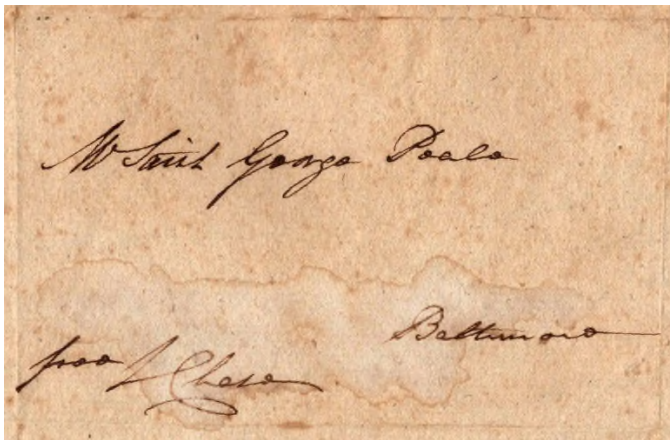 Mr Saint George Peale
Baltimore
free S Chase